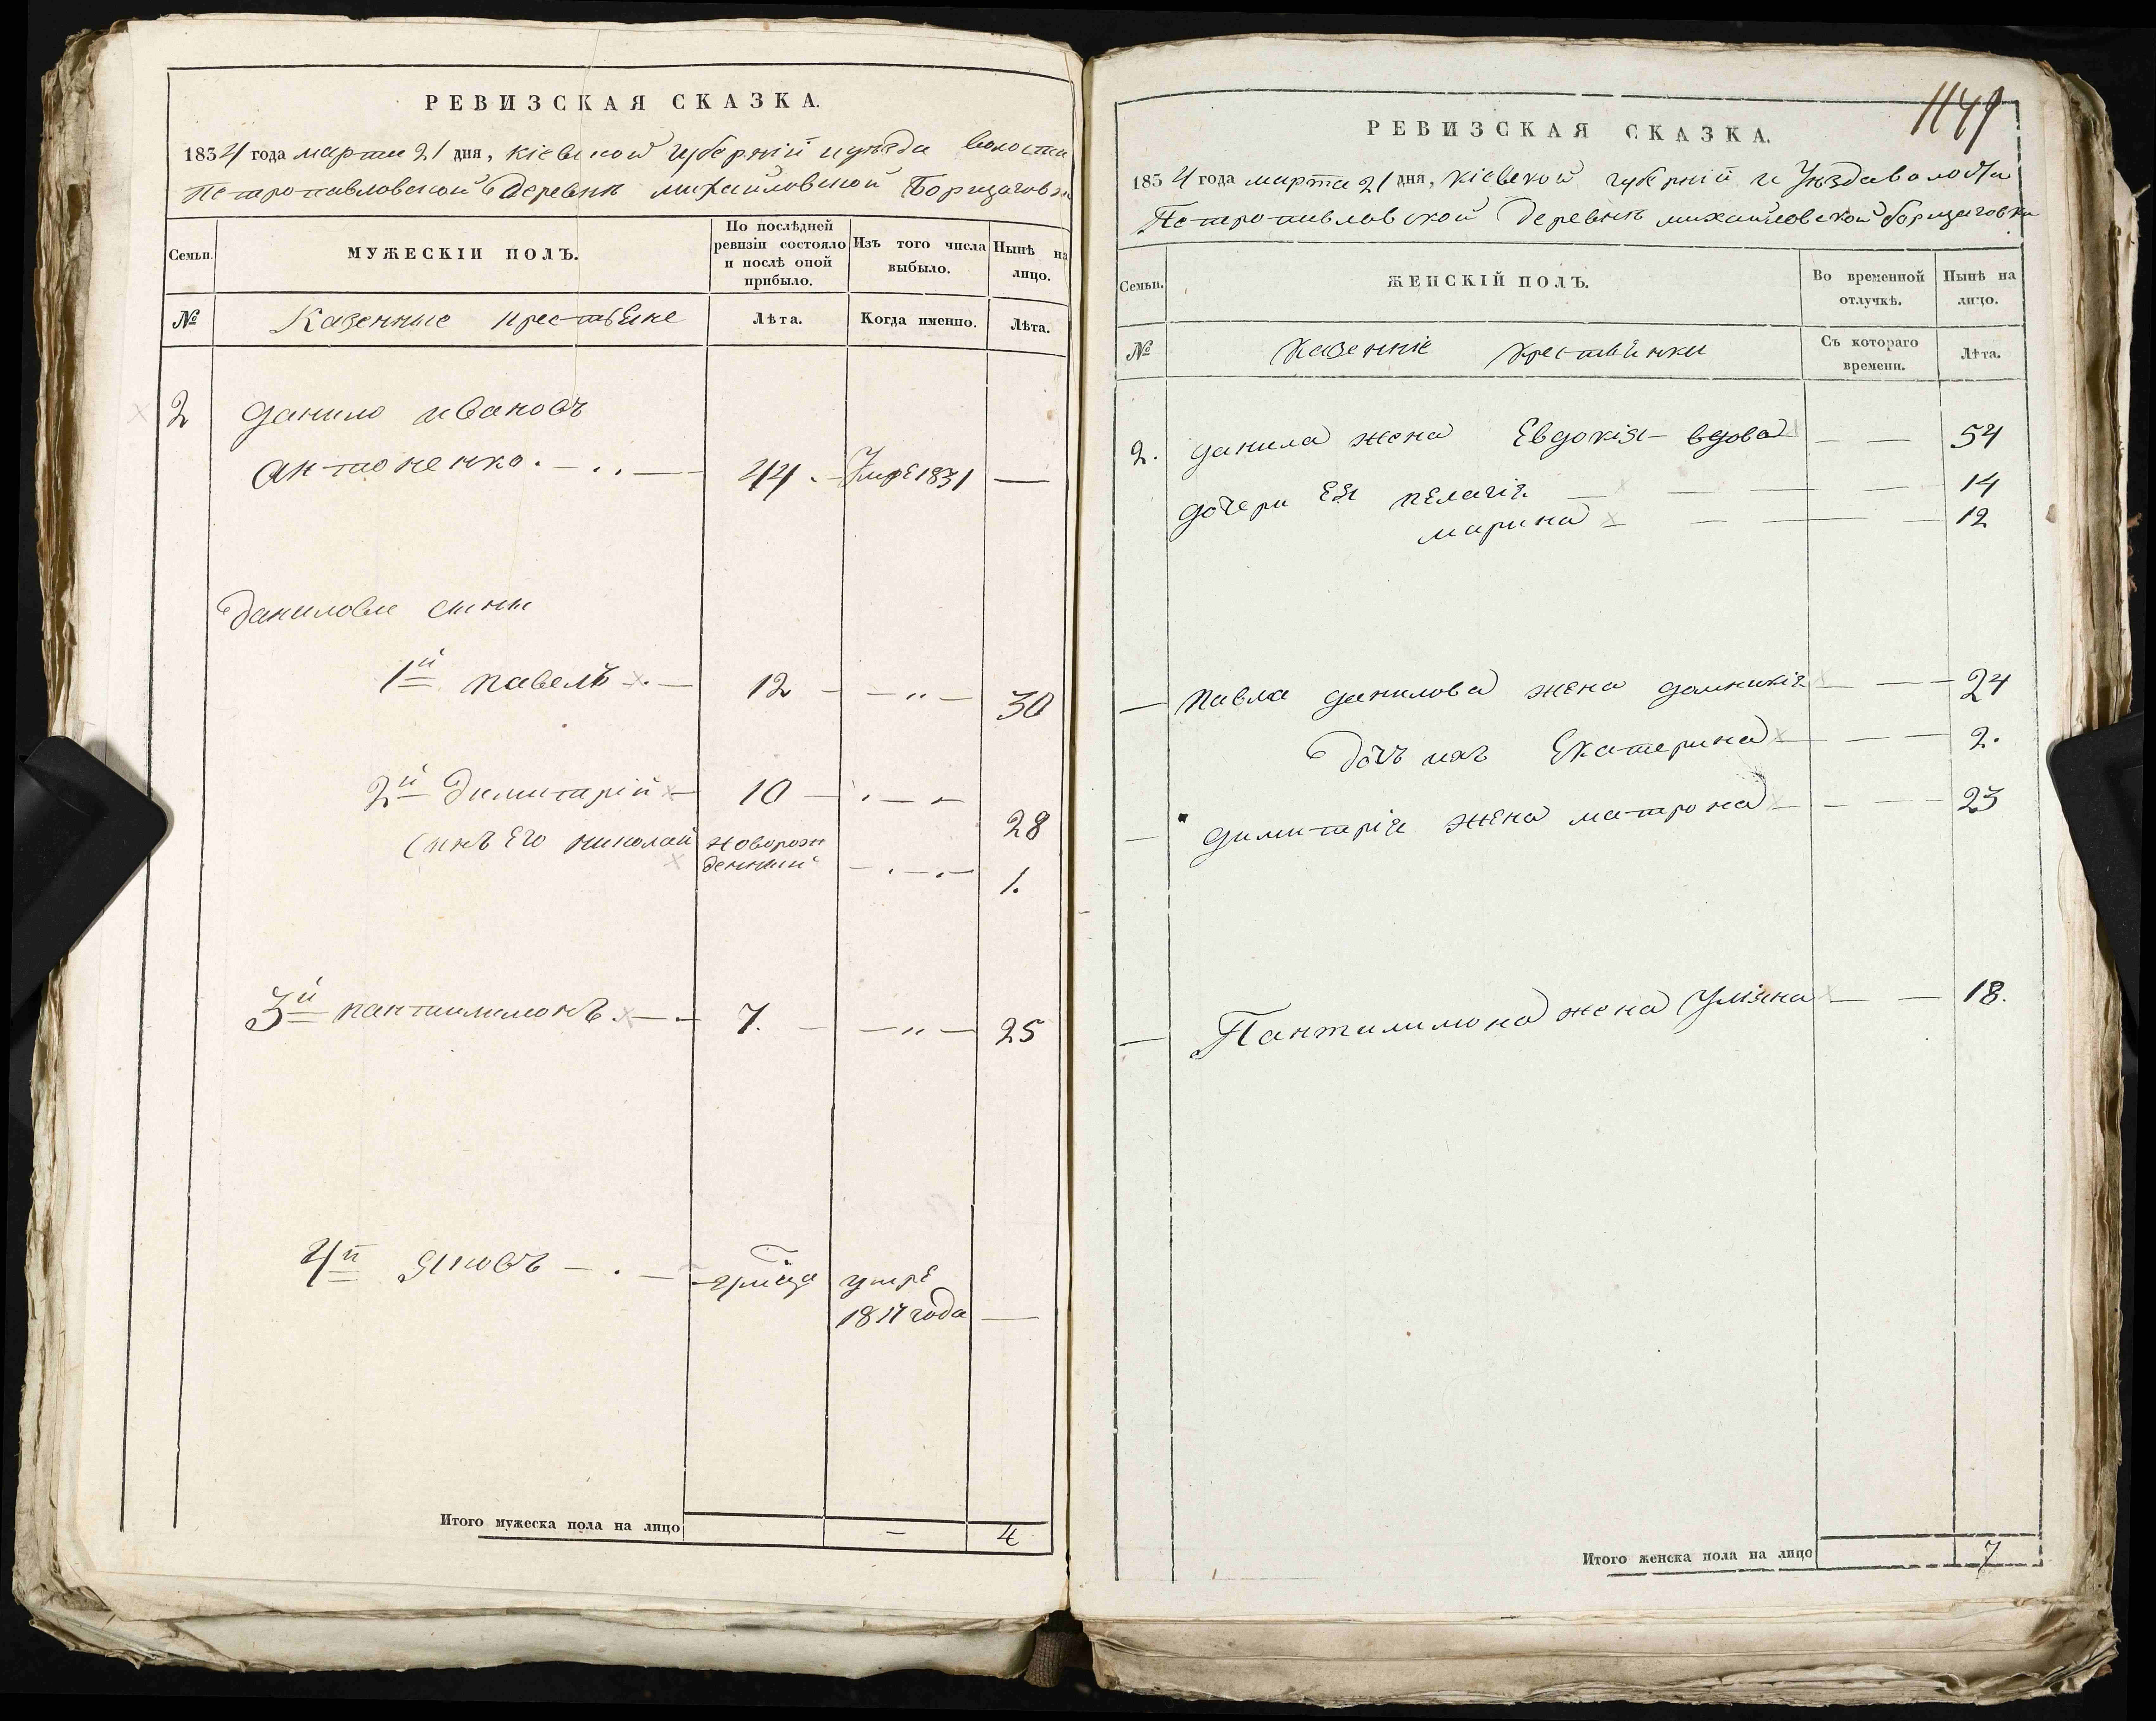 РЕВИЗСКАЯ СКАЗКА.
1834 года марта 21 дня, Кіевской губерніи и уѣзда волости
Петропавловской деревнѣ Михайловской Борщаговки
Семьи.
МУЖЕСКІЙ ПОЛЪ.
По послѣдней ревизіи состояло и послѣ оной прибыло.
Изъ того числа выбыло.
Нынѣ на лицо.
№
Казенные крестьяне
Лѣта.
Когда именно.
Лѣта.
2 Данило Ивановъ
Антоненко 44 Умре 1831 —
Даниловы сыны
1й Павелъ 12 — „ — 30
2й Димитрій 10 28
сынъ его Николай новорожденный 1.
3й Пантилимонъ 7. — „ — 25
4й Яковъ умре
1817 года —
Итого мужеска пола на лицо — 4
1149
РЕВИЗСКАЯ СКАЗКА.
1834 года марта 21 дня, Кіевской губерніи и Уѣзда волости
Петропавловской деревнѣ Михайловской борщаговки
Семьи.
ЖЕНСКІЙ ПОЛЪ.
Во временной отлучкѣ.
Нынѣ на лицо.
№
Казенніе крестьянки
Съ котораго времени.
Лѣта.
2. Данила жена Евдокія вдова — — 54
дочери ея Пелагія — — 14
Марина — — 12
— Павла Данилова жена Домникія — — 24
дочъ ихъ Екатерина — — 2.
— Димитрія жена Матрона — — 23
— Пантилимона жена Уліяна — — 18.
Итого женска пола на лицо 7